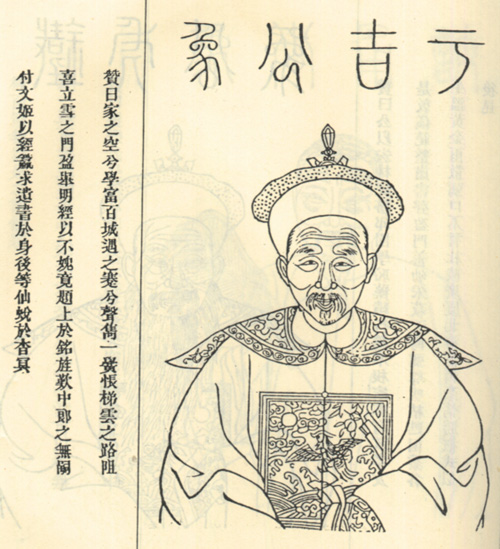 于吉公象
贊曰家之空兮學富百城遇之蹇兮聲雋一黌悵梯雲之路阻
喜立雪之門盈舉明經以不媿竟題上於銘旌歎中郎之無嗣
付文姬以經籯求遺書於身後等仙蛻於杳冥